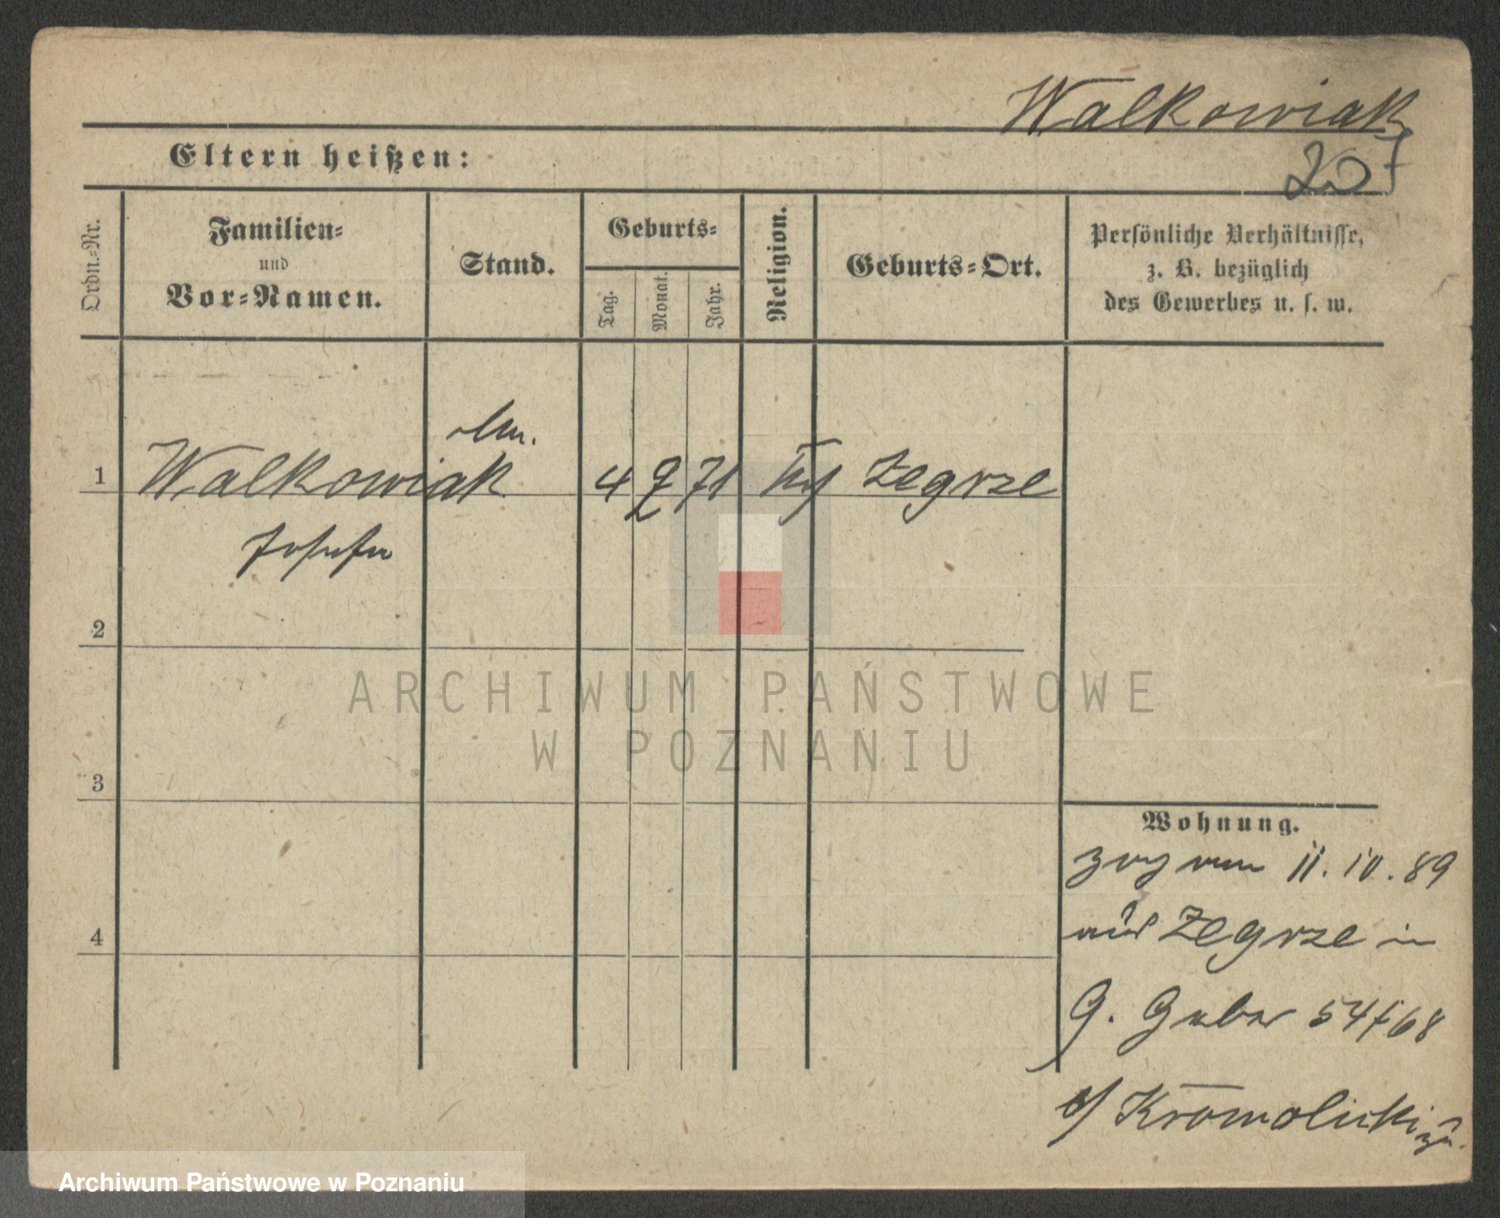 Walkowiak
207
Eltern heißen:
Ordn.-Nr.
Familien-
und
Vor-Namen.
Stand.
Geburts-
Tag.
Monat.
Jahr.
Religion.
Geburts-Ort.
Persönliche Verhältnisse,
z. B. bezüglich
des Gewerbes u. s. w.
1 Walkowiak 4 2 71 Zegrze
Josefa
2
3
4
Wohnung.
zog am 11.10.89
aus Zegrze in
G. Gerber 54/68
b/ Kromolicki
ARCHIWUM PAŃSTWOWE
W POZNANIU
Archiwum Państwowe w Poznaniu